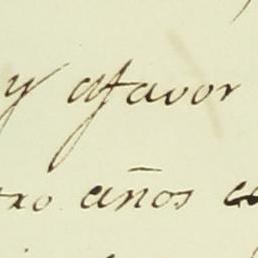 y afavor
tro años